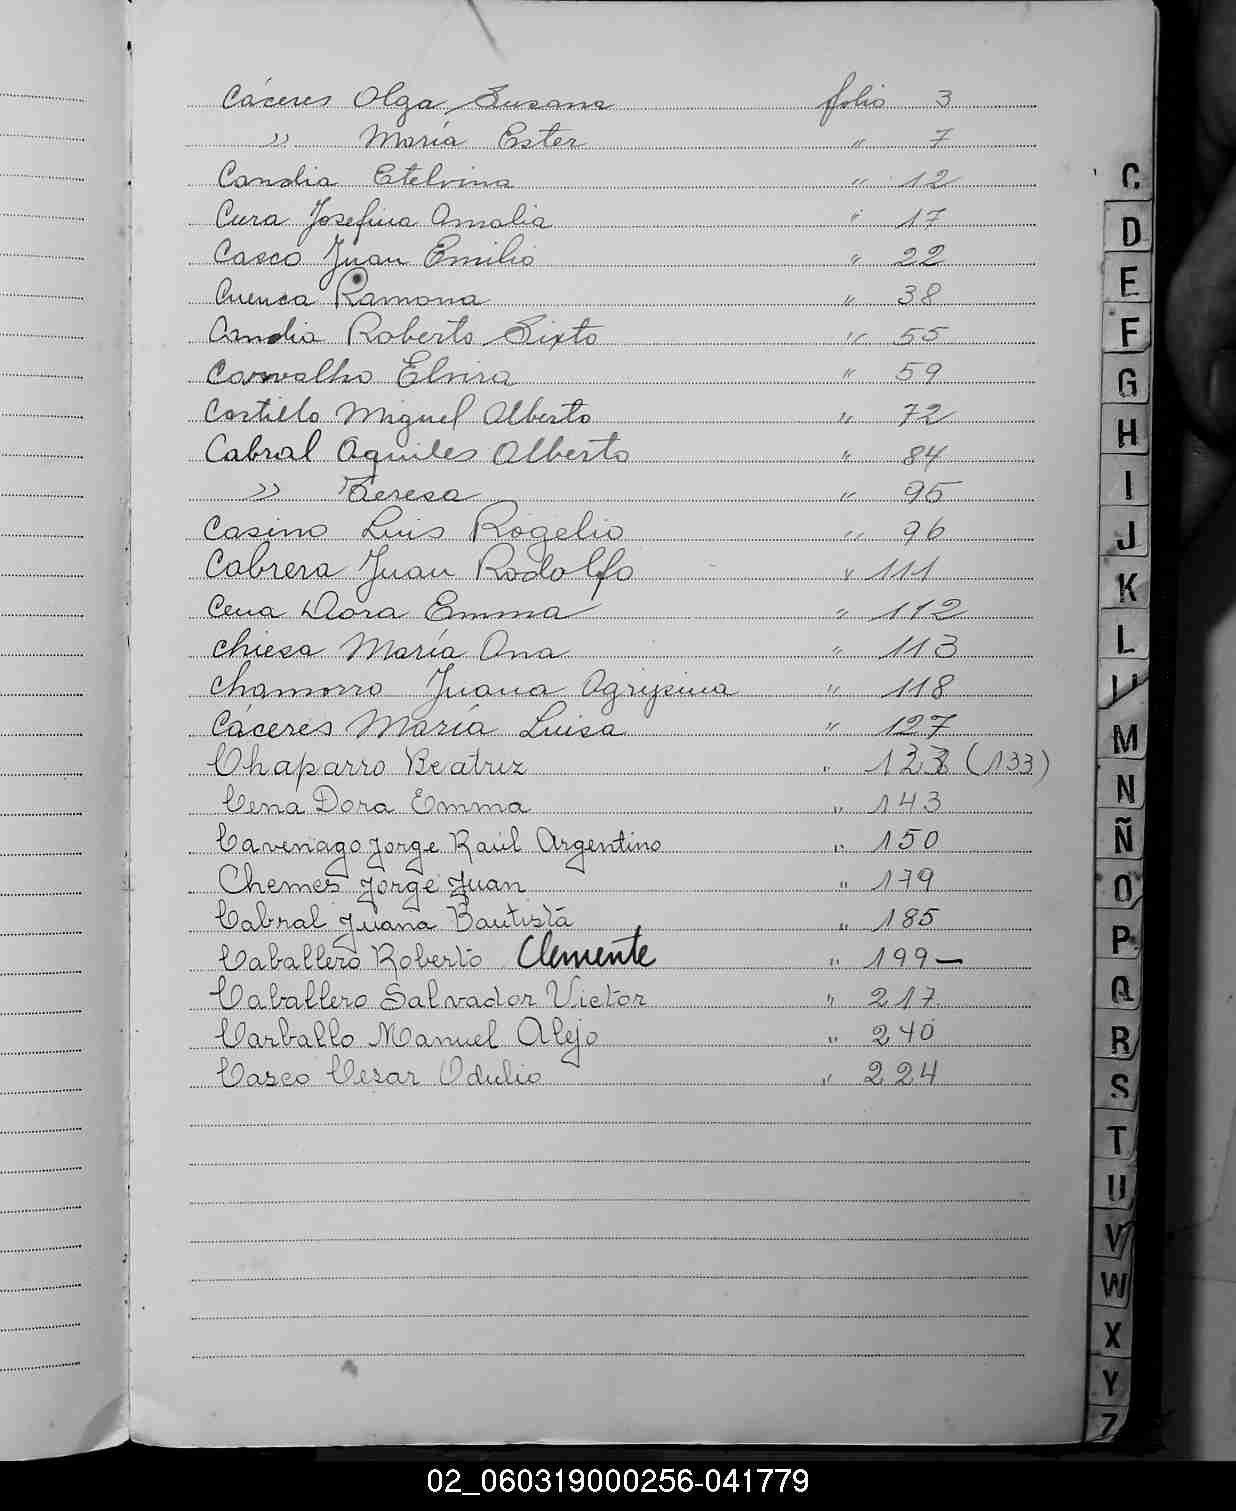 Cáceres Olga Susana folio 3
" María Ester " 7
Candia Etelvina " 12
Cura Josefina Amalia " 17
Casco Juan Emilio " 22
Cuenca Ramona " 38
Candia Roberto Sixto " 55
Carvalho Elvira " 59
Castillo Miguel Alberto " 72
Cabral Aquiles Alberto " 84
" Teresa " 95
Casino Luis Rogelio " 96
Cabrera Juan Rodolfo " 111
Cena Dora Emma " 112
Chiesa María Ana " 113
Chamorro Juana Agripina " 118
Cáceres María Luisa " 127
Chaparro Beatriz " 123 (133)
Cena Dora Emma " 143
Cavenago Jorge Raúl Argentino " 150
Chemes Jorge Juan " 179
Cabral Juana Bautista " 185
Caballero Roberto Clemente " 199-
Caballero Salvador Victor " 217
Carballo Manuel Alejo " 240
Casco Cesar Odulio " 224
C
D
E
F
G
H
I
J
K
L
M
N
Ñ
O
P
Q
R
S
T
U
V
W
X
Y
Z
02_060319000256-041779